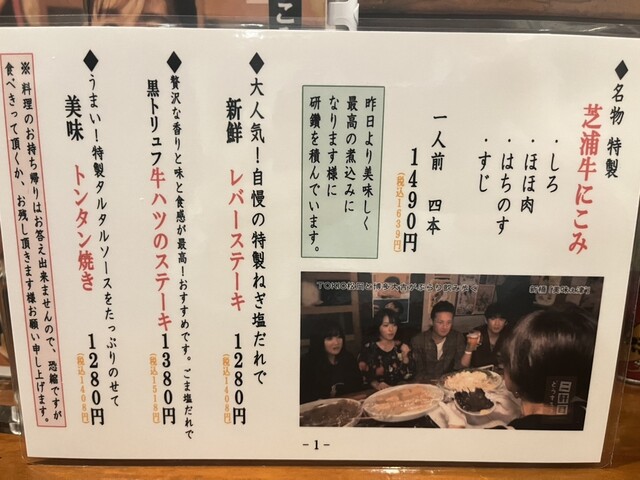 ◆名物 特製
芝浦牛にこみ
・しろ
・ほほ肉
・はちのす
・すじ
一人前 四本
1490円
(税込1639円)
昨日より美味しく
最高の煮込みに
なります様に
研鑽を積んでいます。
◆大人気！自慢の特製ねぎ塩だれで
新鮮 レバーステーキ 1280円
(税込1408円)
◆贅沢な香りと味と食感が最高！おすすめです。ごま塩だれで
黒トリュフ牛ハツのステーキ 1380円
(税込1518円)
◆うまい！特製タルタルソースをたっぷりのせて
美味 トンタン焼き 1280円
(税込1408円)
※料理のお持ち帰りはお答え出来ませんので、恐縮ですが
食べきって頂くか、お残し頂きます様お願い申し上げます。
-1-